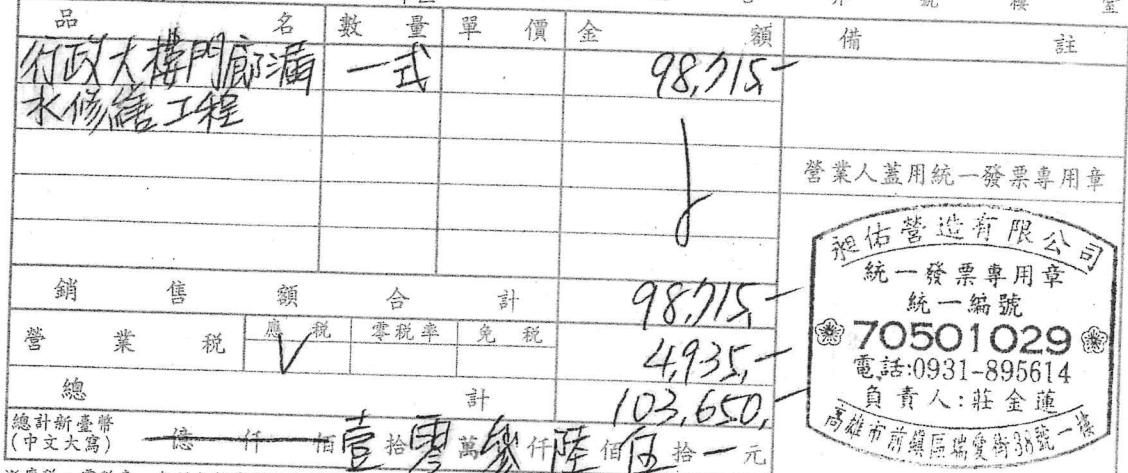 號 樓 室
品 名 數 量 單 價 金 額 備 註
行政大樓門廊漏 一式 98,715,-
水修繕工程
營業人蓋用統一發票專用章
銷 售 額 合 計 98,715,-
營 業 稅 應 稅 零稅率 免 稅 4,935,-
V
總 計 103,650,-
總計新臺幣
(中文大寫) 億 仟 佰 壹 拾 零 萬 參 仟 陸 佰 伍 拾 一 元
昶佑營造有限公司
統一發票專用章
統一編號
70501029
電話:0931-895614
負責人:莊金蓮
高雄市前鎮區瑞愛街38號一樓